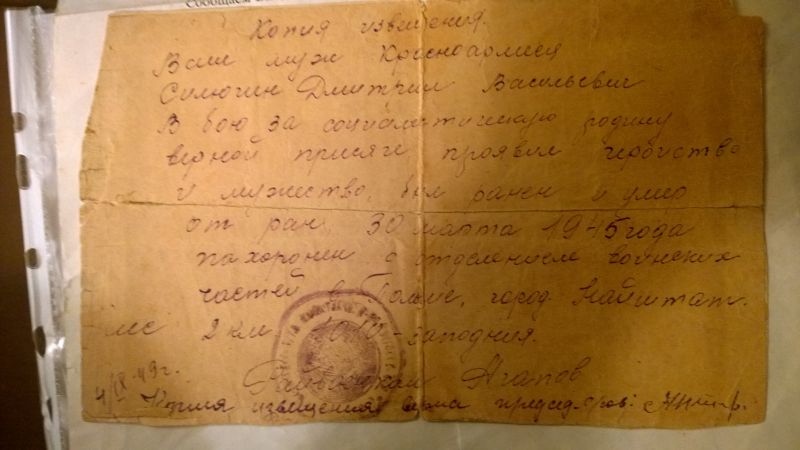 Сообщаем
Копия извещения.
Ваш муж Красноармеец
Силюгин Дмитрий Васильевич
В бою за социалистическую родину
верной присяги проявив геройство
и мужество, был ранен и умер
от ран 30 марта 1945 года
похоронен с отделением воинских
частей в Польше, город Найштат.
2 км. юго-
Райвоенком Агапов
4/IX-49г.
Копия извещения верна председ.